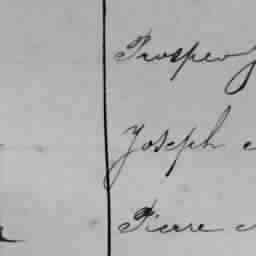 Prosper
Joseph
Pierre